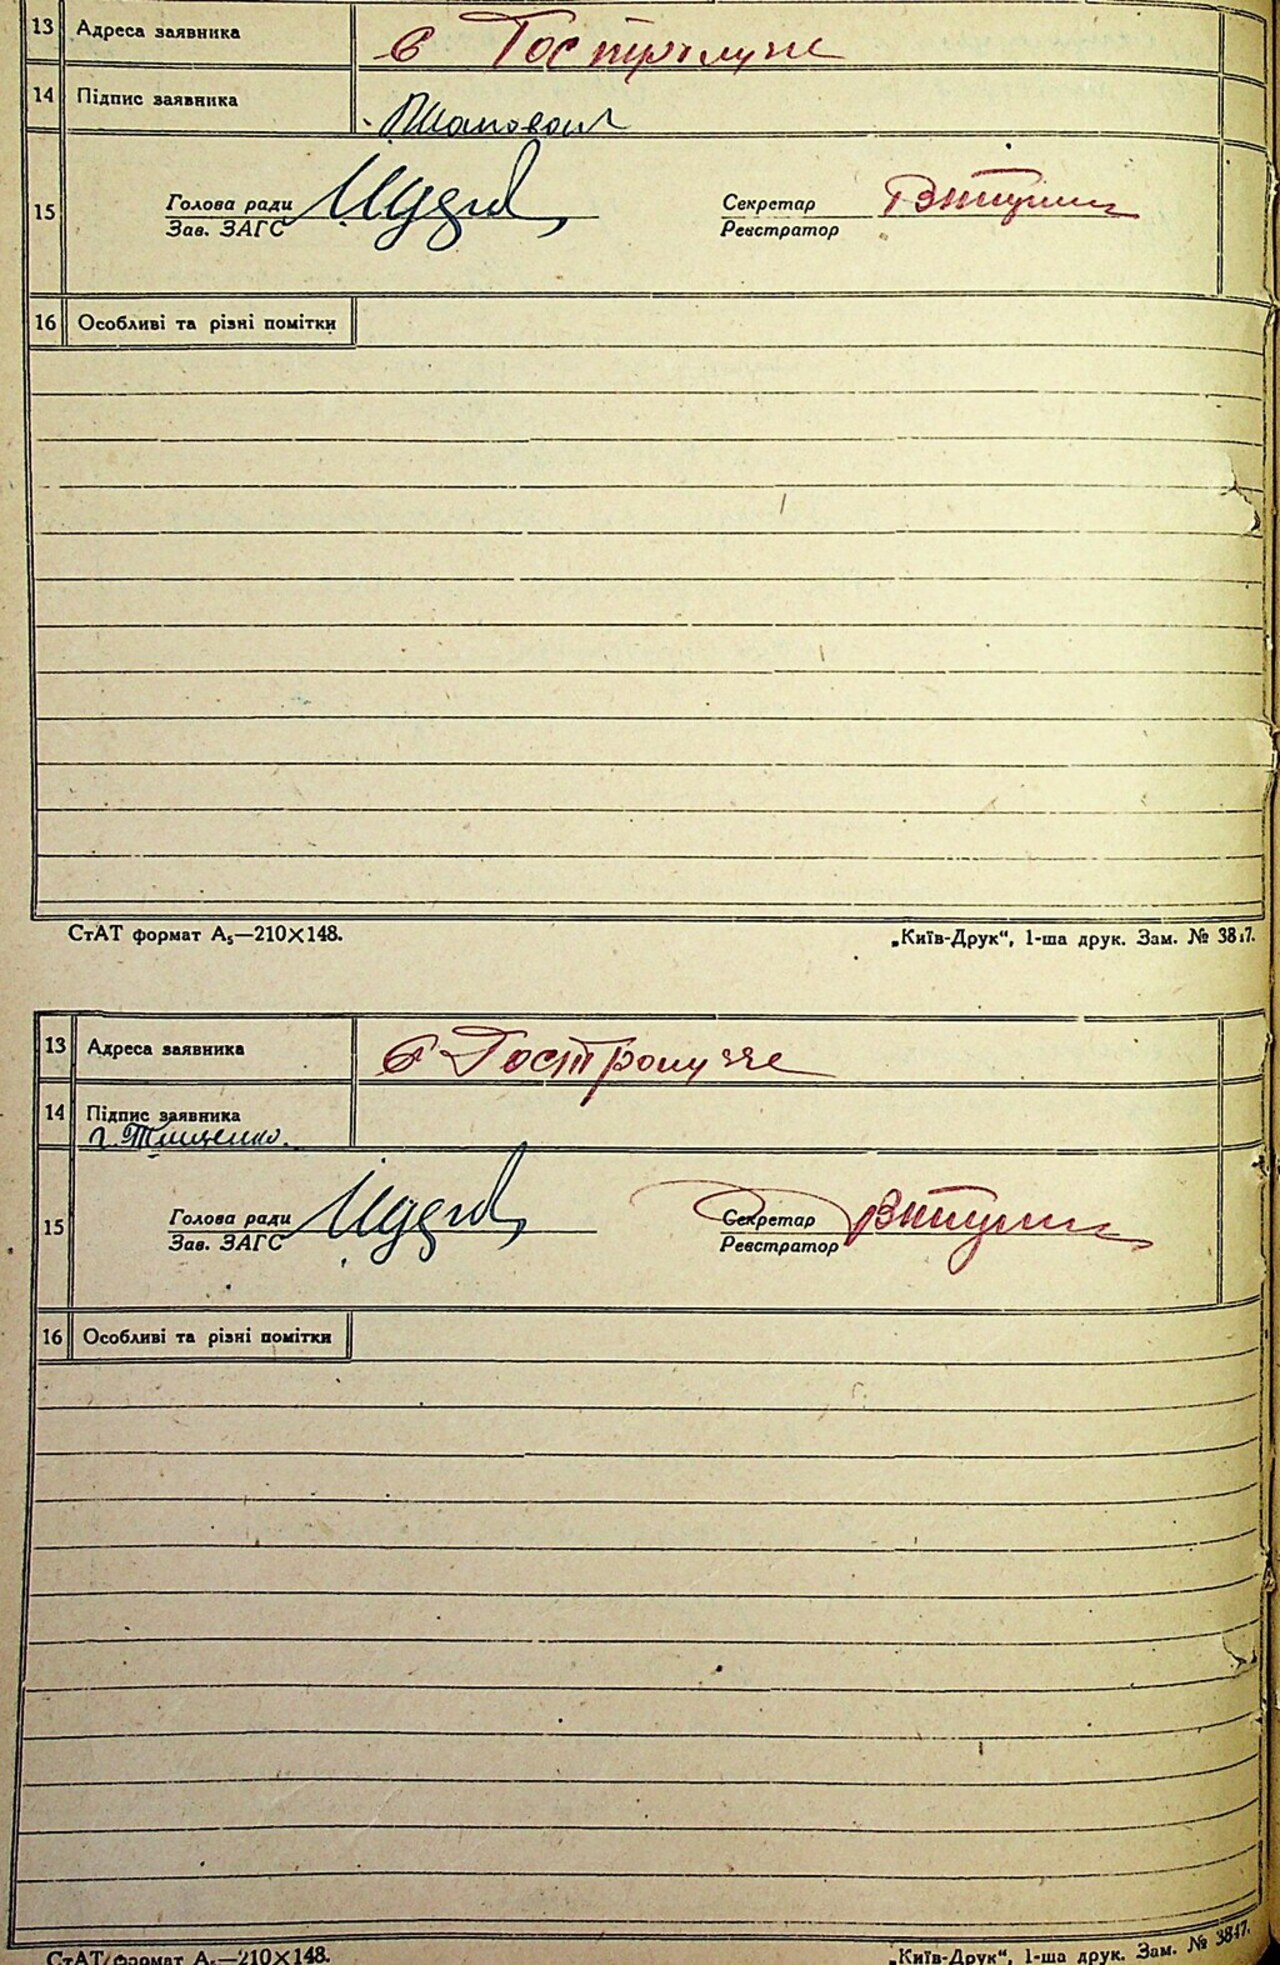 13 Адреса заявника с Гостролуче
14 Підпис заявника Шаповал
15 Голова ради Секретар
Зав. ЗАГС Реєстратор
16 Особливі та різні помітки
СтАТ формат А₅—210×148. „Київ-Друк“, 1-ша друк. Зам. № 3817.
13 Адреса заявника с Гостролуччє
14 Підпис заявника
Г. Тищенко.
15 Голова ради Секретар
Зав. ЗАГС Реєстратор
16 Особливі та різні помітки
СтАТ формат А₅—210×148. „Київ-Друк“, 1-ша друк. Зам. № 3817.